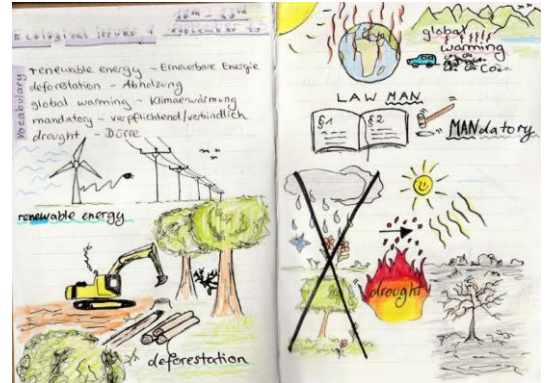 Ecological issues
September 20
Vocabulary
renewable energy - Erneuerbare Energie
deforestation - Abholzung
global warming - Klimaerwärmung
mandatory - verpflichtend/verbindlich
drought - Dürre
renewable energy
deforestation
global
warming
CO2
LAW MAN
§1 §2
MANdatory
drought